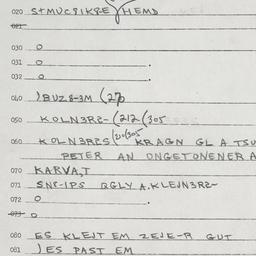 020 S+MUC8IK8E YHEMD
021
030 O
031 O .
032 O
040 )BUZ8-3M (276
050 KOLN3R2-(212(305
060 KOLN3R2S(210(305 KRAGN GL A TSU
PETER AN ONGETONENER A
070 KARVA,T
071 SNE-IPS QGLY A.KLEJN3R2-
072 O .
073 O
080 ES KLEJT EM ZEJE-R GUT
081 )ES PAST EM